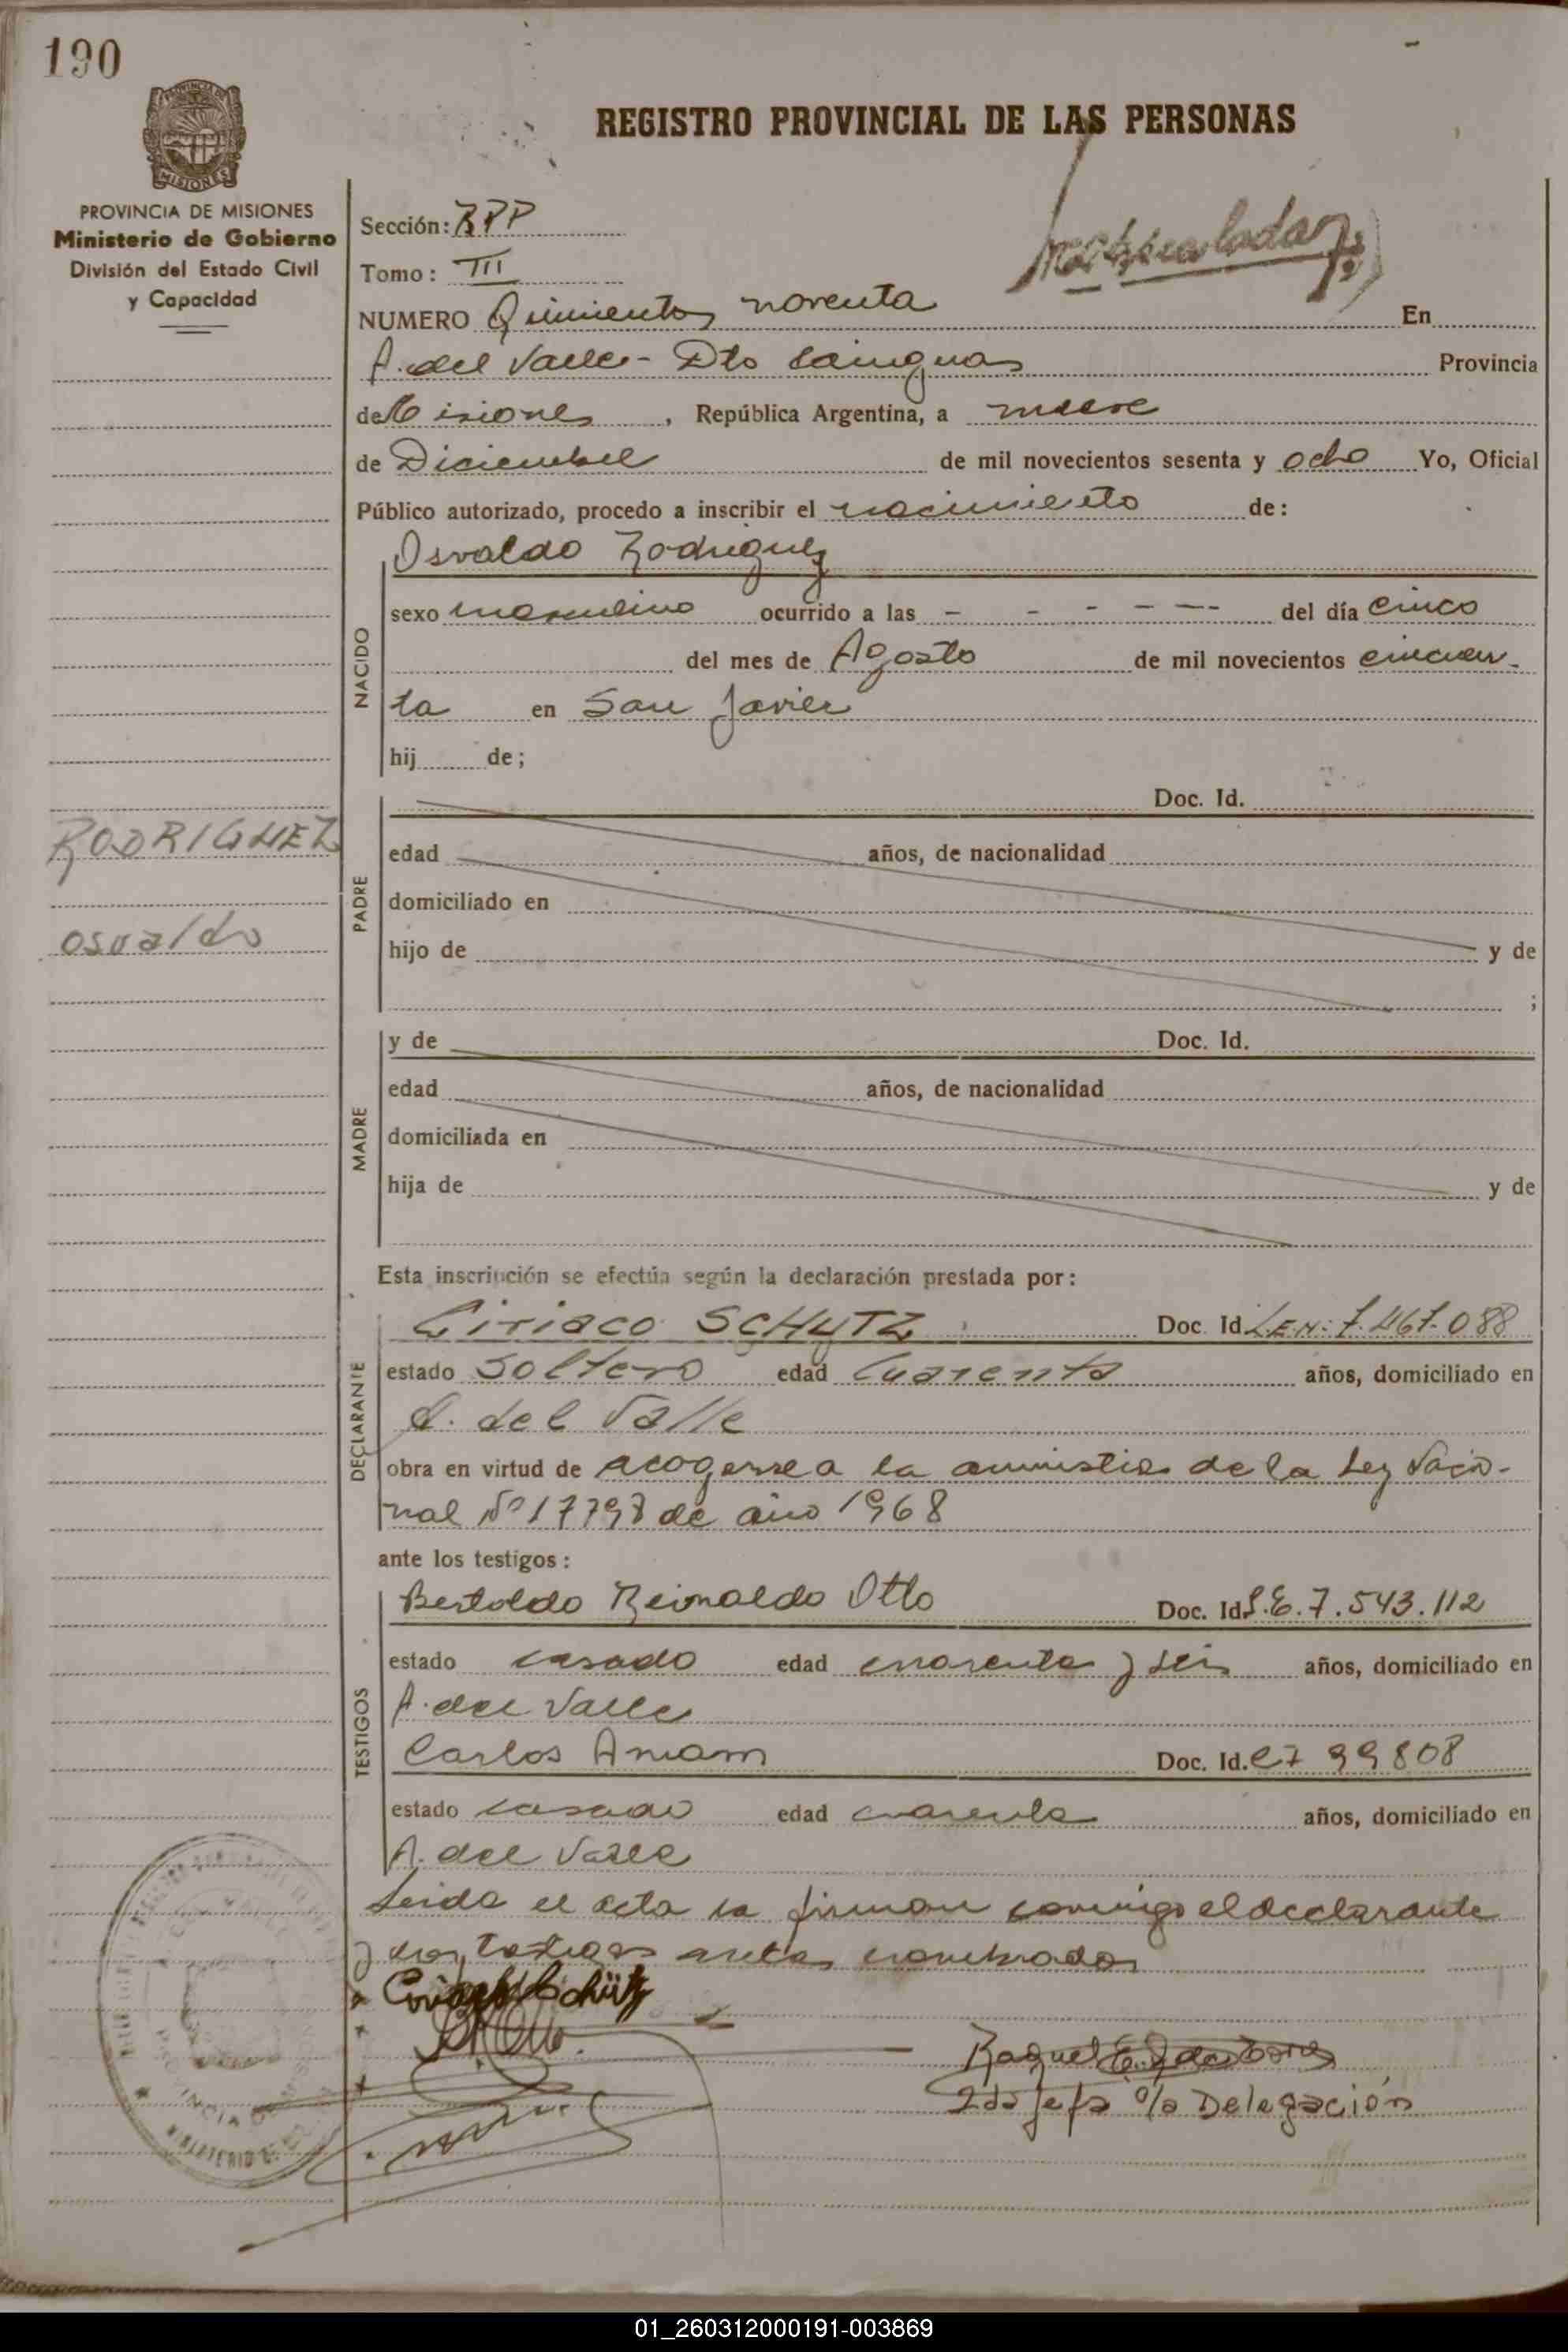 190
REGISTRO PROVINCIAL DE LAS PERSONAS
MISIONES
PROVINCIA DE MISIONES
Ministerio de Gobierno
División del Estado Civil
y Capacidad
Sección: RPP
Tomo: III
NUMERO Quinientos noventa En
A. del Valle - Dto Cainguas Provincia
de Misiones, República Argentina, a nueve
de Diciembre de mil novecientos sesenta y ocho Yo, Oficial
Público autorizado, procedo a inscribir el nacimiento de:
Osvaldo Rodriguez
NACIDO
sexo masculino ocurrido a las - - - - - - del día cinco
del mes de Agosto de mil novecientos cincuen-
ta en San Javier
hij de;
RODRIGUEZ
osvaldo
PADRE
Doc. Id.
edad años, de nacionalidad
domiciliado en
hijo de y de
;
MADRE
y de Doc. Id.
edad años, de nacionalidad
domiciliada en
hija de y de
Esta inscripción se efectúa según la declaración prestada por:
DECLARANTE
Ciriaco SCHUTZ Doc. Id. L.E.N: 7.467.088
estado soltero edad cuarenta años, domiciliado en
A. del Valle
obra en virtud de acogerse a la amnistia de la Ley Nacio-
nal Nº 17798 de año 1968
ante los testigos:
TESTIGOS
Bertoldo Reinaldo Otto Doc. Id. L.E. 7.543.112
estado casado edad cuarenta y seis años, domiciliado en
A. del Valle
Carlos Doc. Id. 99808
estado casado edad cuarenta años, domiciliado en
A. del Valle
Leida el acta la firman conmigo el declarante
y los testigos antes nombrados
Schütz
Raquel
2da Jefa o/a Delegación
01_260312000191-003869